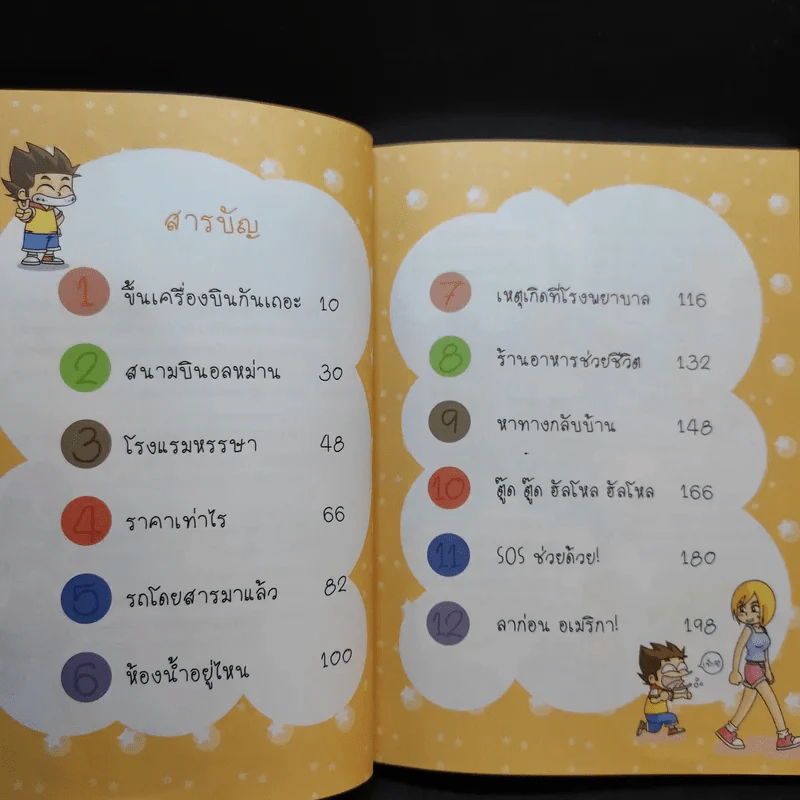 สารบัญ
1 ขึ้นเครื่องบินกันเถอะ 10
2 สนามบินอลหม่าน 30
3 โรงแรมหรรษา 48
4 ราคาเท่าไร 66
5 รถโดยสารมาแล้ว 82
6 ห้องน้ำอยู่ไหน 100
7 เหตุเกิดที่โรงพยาบาล 116
8 ร้านอาหารช่วยชีวิต 132
9 หาทางกลับบ้าน 148
10 ตู๊ด ตู๊ด ฮัลโหล ฮัลโหล 166
11 SOS ช่วยด้วย! 180
12 ลาก่อน อเมริกา! 198